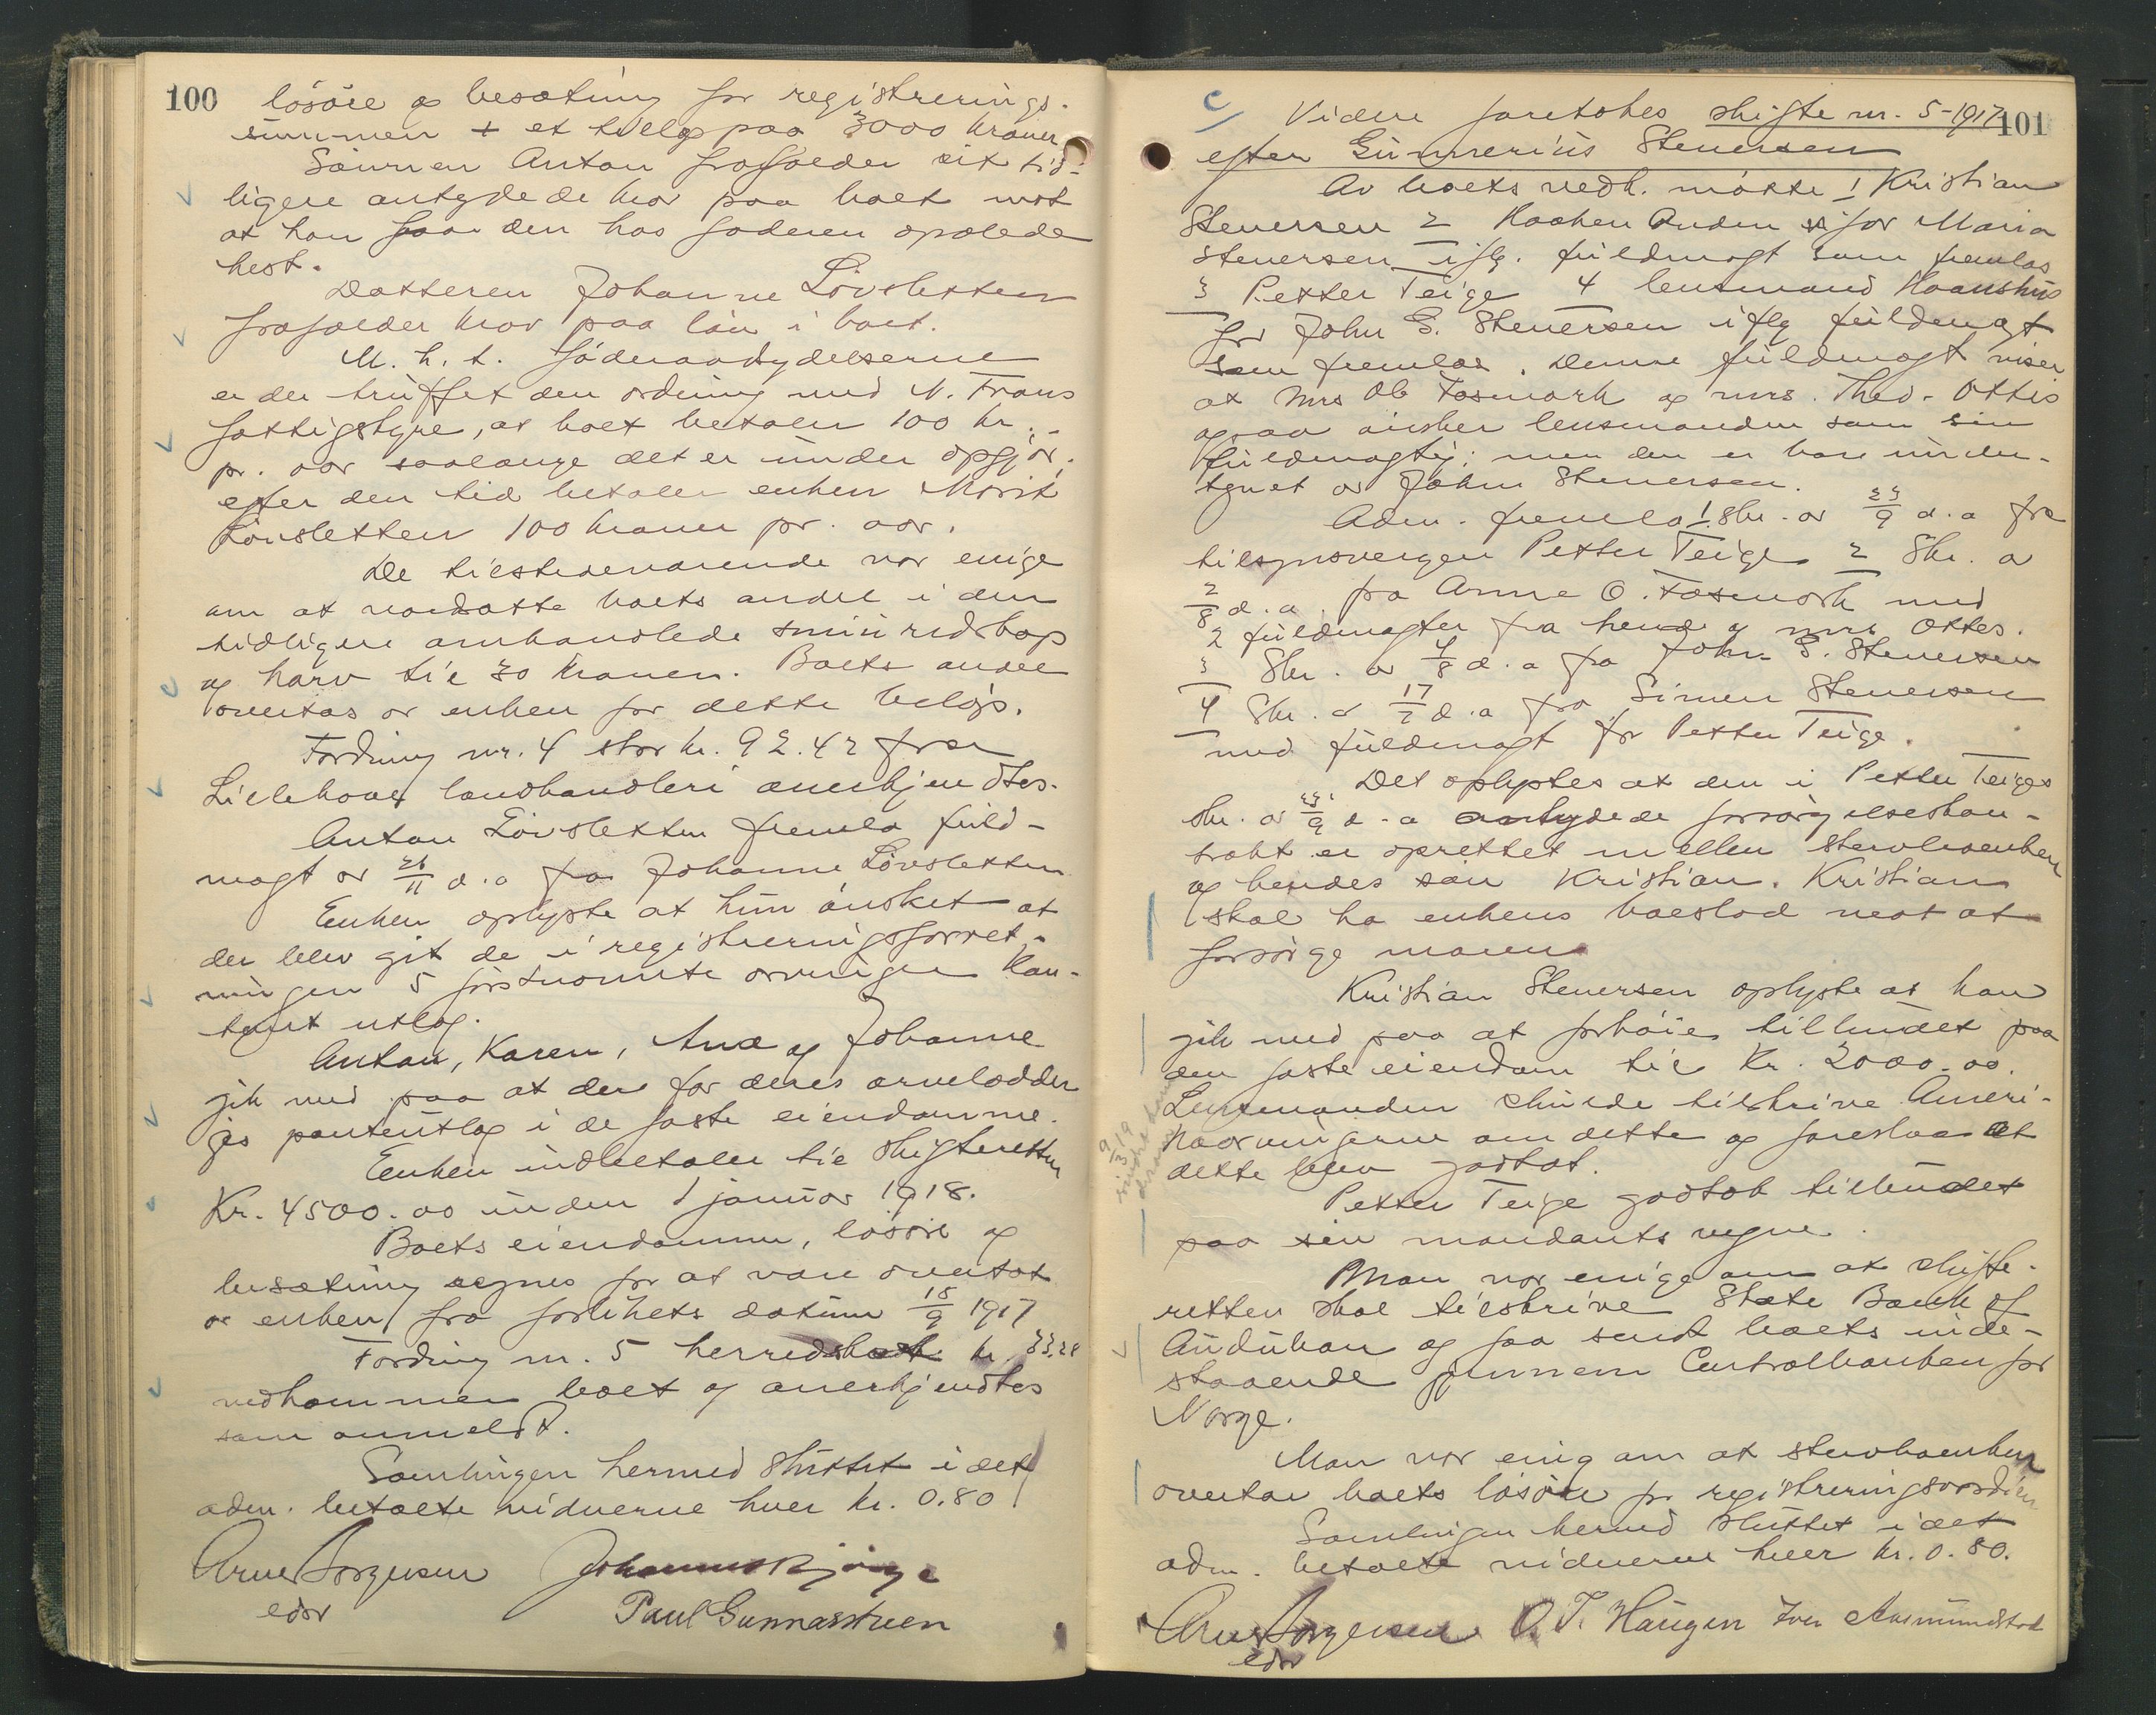 100
løsøre og besætning for registrerings-
summen + et tillæg paa 3000 kroner
Sønnen Anton frafalder sit tid-
ligere antydede krav paa boet mot
at han faar den hos faderen opalede
hest.
Datteren Johanne Løvsletten
frafalder krav paa løn i boet.
M. h. t. føderaadsydelserne
er der truffet den ordning med N. Trans
fattigstyre, at boet betaler 100 kr.
pr. aar saalange det er under opgjør.
efter den tid betaler enken Marit
Løvsletten 100 kroner pr. aar.
De tilstedeværende var enige
om at værdsætte boets andel i den
tidligere omhandlede smiuredskap
og harv til 30 kroner. Boets andel
overtas av enken for dette beløp.
Fordring nr. 4 stor kr. 92.42 fra
Lillehov landhandleri anerkjendtes.
Anton Løvsletten fremla fuld-
magt av 26/11 d.a fra Johanne Løvsletten
Enken oplyste at hun ønsket at
der blev git de i registreringsforret-
ningen 5 førstnævnte arvinger kon-
tant utlæg.
Anton, Karen, Ane og Johanne
gik med paa at der for deres arvelodder
gis panteutlæg i de faste eiendomme.
Enken indbetaler til skifteretten
Kr. 4500.00 inden 1 januar 1918.
Boets eiendomme, løsøre og
besætning regnes for at være overtat
av enken fra forlikets datum 15/9 1917
Fordring nr. 5 herredskasse kr. 33.28
vedkommer boet og anerkjendtes
som anmeldt.
Samlingen hermed sluttet idet
adm. betalte vidnerne hver kr. 0.80
Arne Jørgensen Johannes Bjørge
edsv Paul Gunnarstuen
101
C Videre foretokes skifte nr. 5-1917
efter Gunnerius Stenersen
Av boets vedk. møtte 1 Kristian
Stenersen 2 Haaken Anden for Maria
Stenersen iflg. fuldmagt som fremlas
3 Petter Teige 4 lensmand Haanshus
for John G. Stenersen iflg fuldmagt
som fremlas. Denne fuldmagt viser
at Mrs Ole Fosmark og mrs. Theo. Ottis
ogsaa ønsker lensmanden som sin
fuldmægtig; men den er bare under-
tegnet av John Stenersen.
Adm. fremla 1 skr. av 23/9 d.a fra
tilsynsvergen Petter Teige 2 Skr. a
2/8 d.a. fra Anne O. Fosmark med
2 fuldmagter fra hende og mrs Ottes.
3 Skr. av 4/8 d.a fra John G. Stenersen
4 Skr. a 17/7 d.a fra Simen Stenersen
med fuldmagt for Petter Teige.
Det oplystes at den i Petter Teiges
skr. av 23/9 d.a antydede forsørgelseskon-
trakt er oprettet mellem sterboenken
og hendes søn Kristian. Kristian
skal ha enkens boeslod mot at
forsørge moren
Kristian Stenersen oplyste at han
gik med paa at forhøie tilbudet paa
den faste eiendom til Kr. 2000.00.
Lensmanden skulde tilskrive Ameri-
kaarvingerne om dette og foreslaa at
dette blev godtat.
9/3 19
Petter Teige godtok tilbudet
paa sin mandants vegne.
Man var enige om at skifte-
retten skal tilskrive State Bank of
Audubon og faa sendt boets inde-
staaende gjennem Centralbanken for
Norge.
Man var enig om at sterboenken
overtar boets løsøre for registreringsværdien
Samlingen hermed sluttet idet
adm. betalte vidnerne hver kr. 0.80.
Arne Jørgensen O. T. Haugen Iver Aasmundstad
edsv